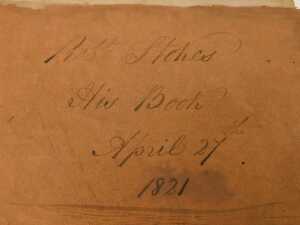 Robt Stokes
His Book
April 27th
1821